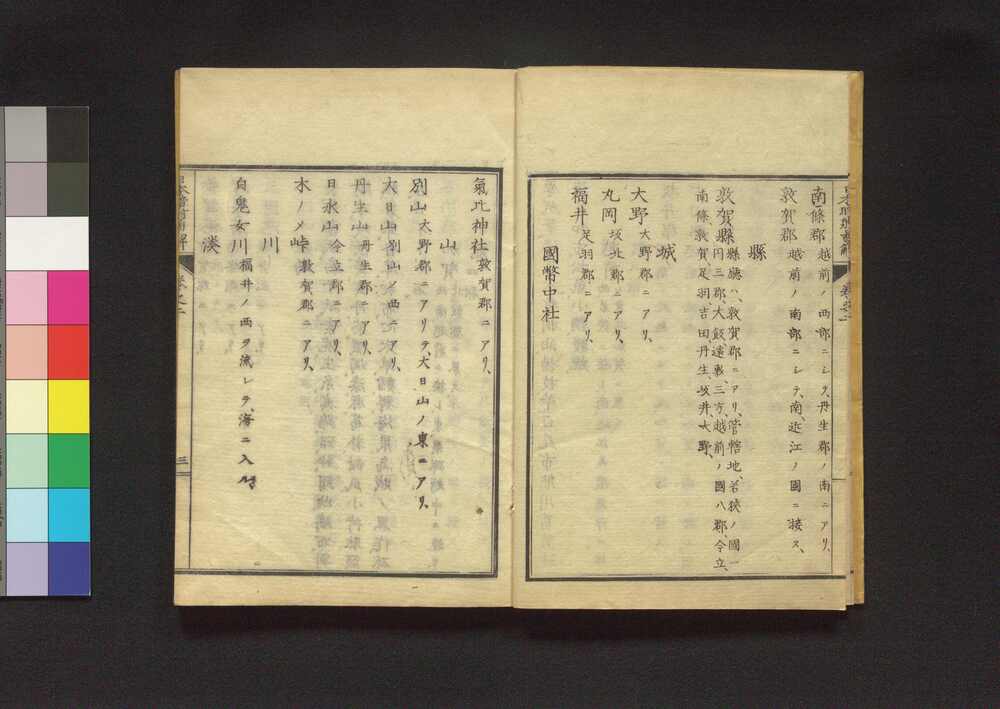 南條郡 越前ノ西部ニシテ、丹生郡ノ南ニアリ、
敦賀郡 越前ノ南部ニシテ、南、近江ノ國ニ接ス、
縣
敦賀縣 縣廳ハ、敦賀郡ニアリ、管轄地、若狹ノ國一
円三郡、大飯、遠敷、三方、越前ノ國八郡、今立、
南條、敦賀、足羽、吉田、丹生、坂井、大野、
城
大野 大野郡ニアリ、
丸岡 坂北郡ニアリ、
福井 足羽郡ニアリ、
國幣中社
氣比神社 敦賀郡ニアリ、
山
別山 大野郡ニアリテ、大日山ノ東ニアリ、
大日山 別山ノ西ニアリ、
丹生山 丹生郡ニアリ、
日永山 今立郡ニアリ、
木ノメ峠 敦賀郡ニアリ、
川
白鬼女川 福井ノ西ヲ流レテ、海ニ入ル
湊
三